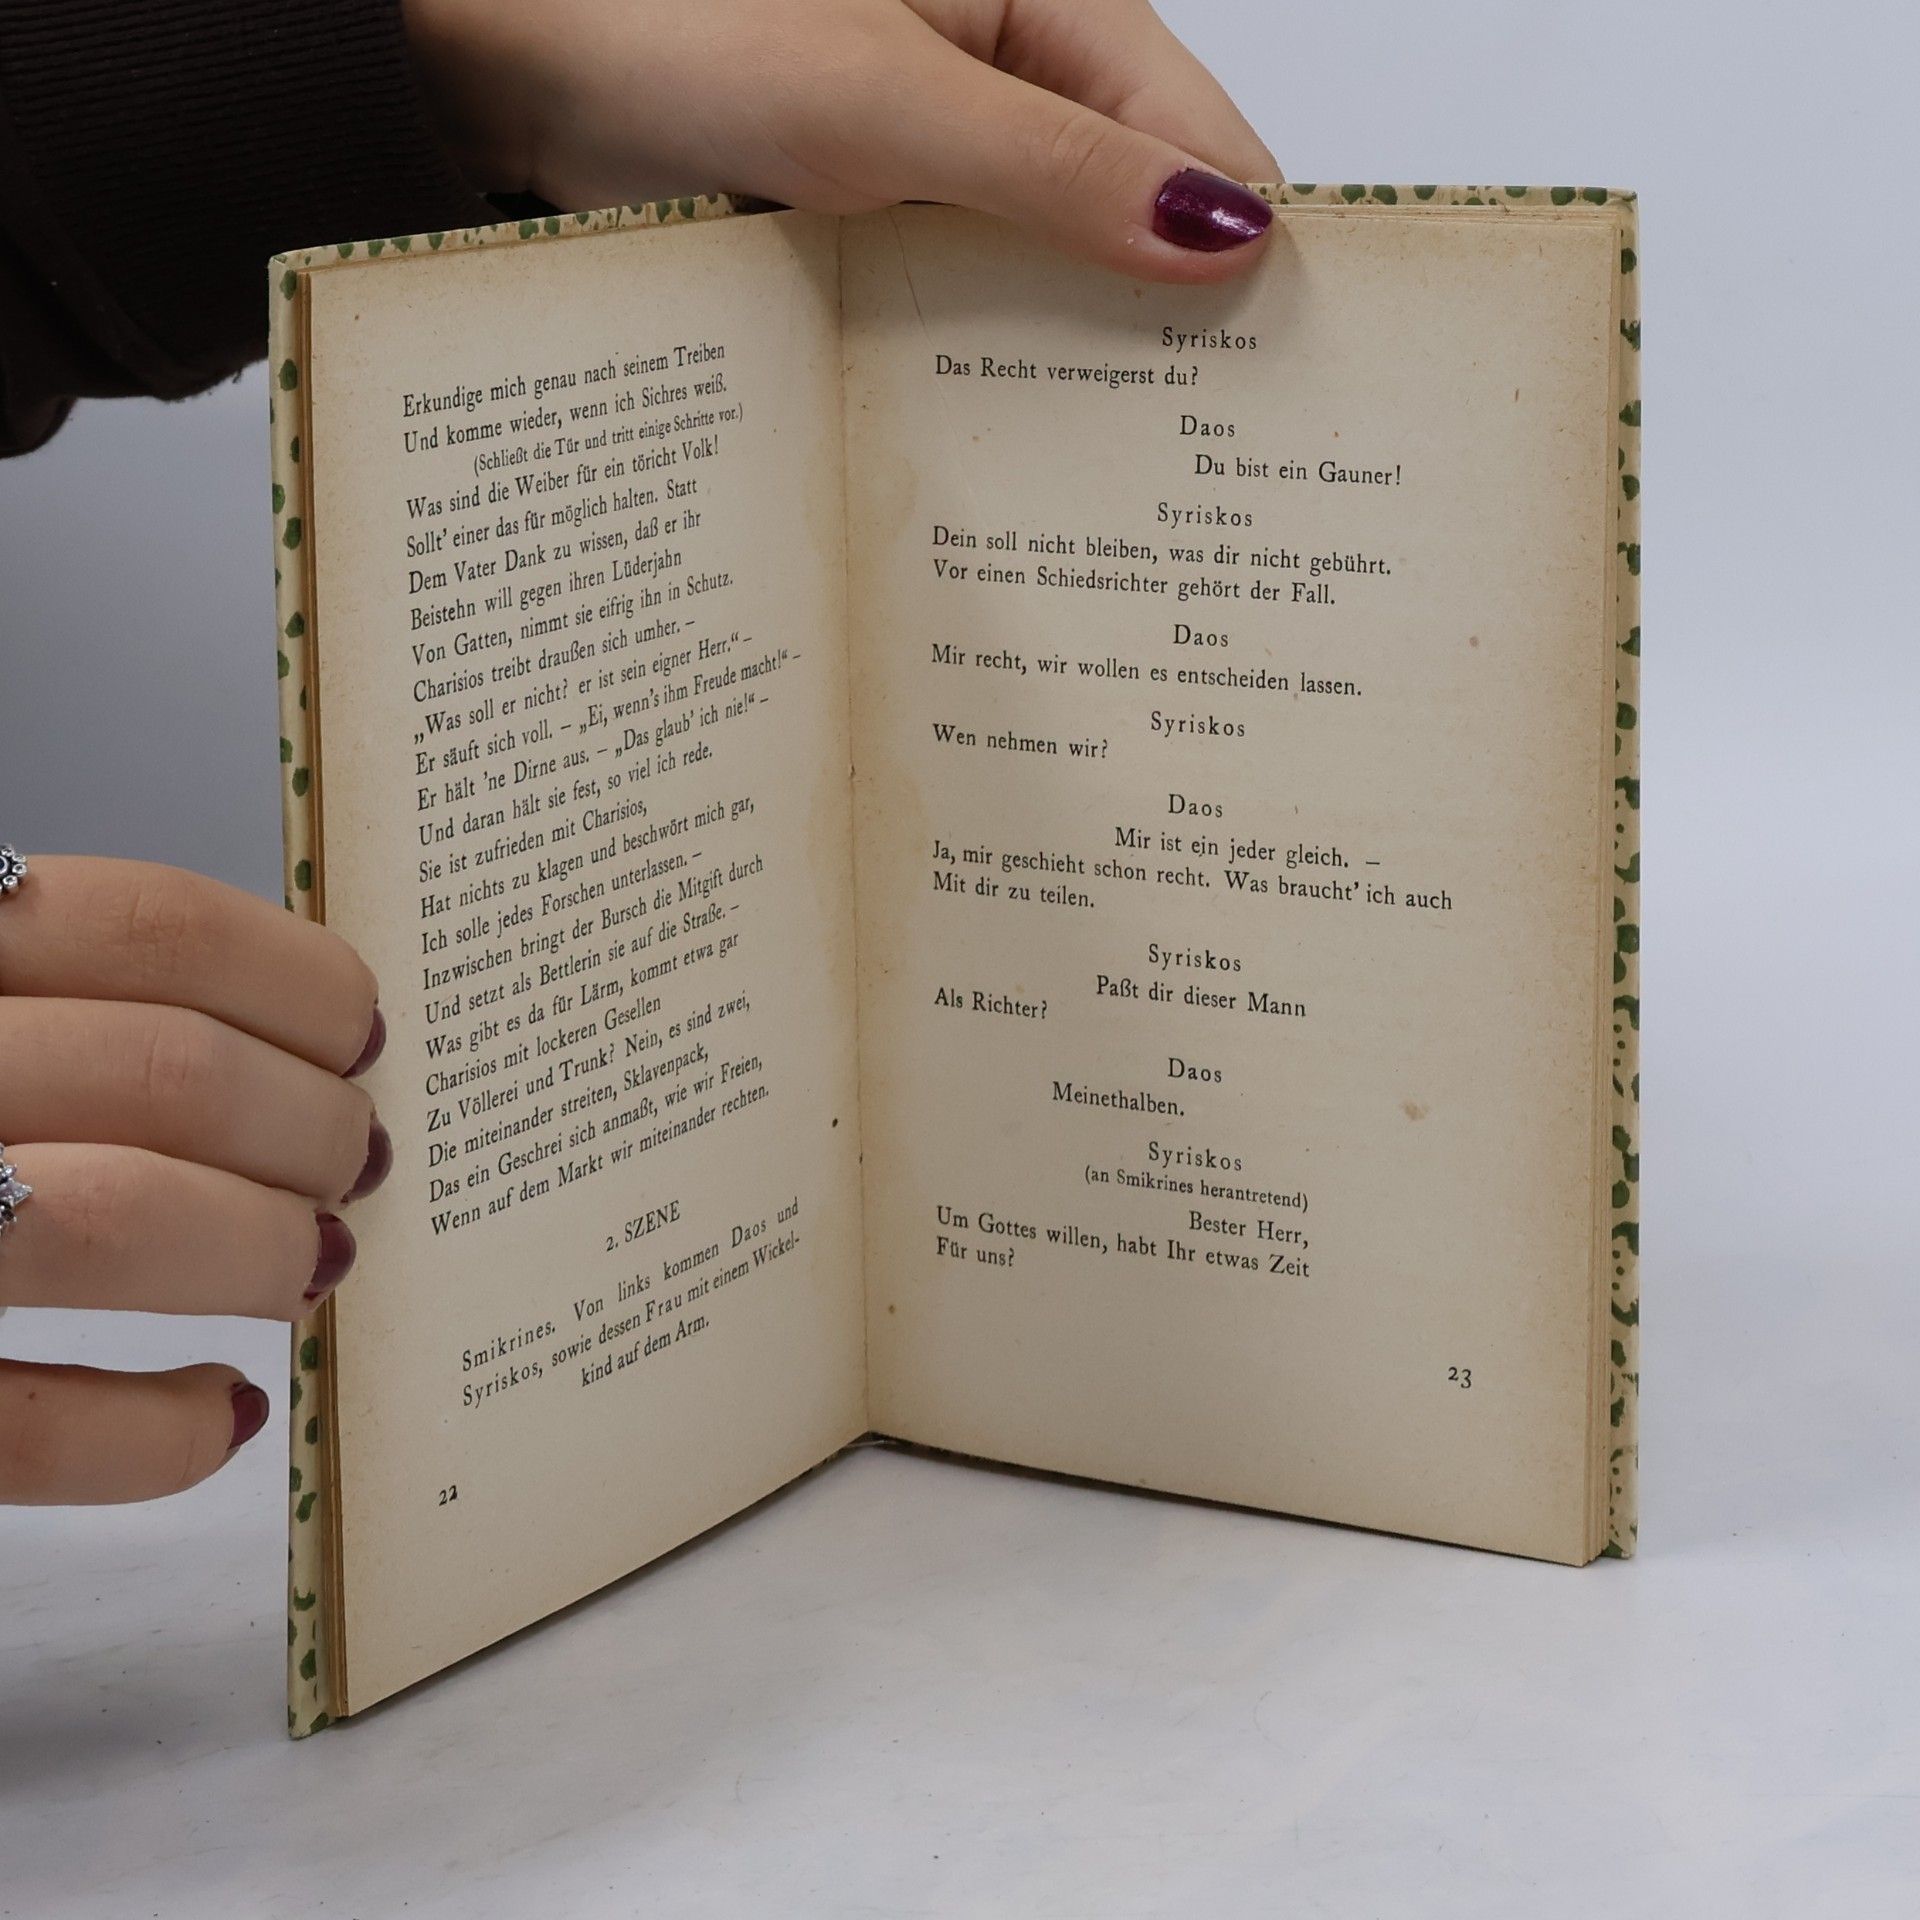 Erkundige mich genau nach seinem Treiben
Und komme wieder, wenn ich Sichres weiß.
(Schließt die Tür und tritt einige Schritte vor.)
Was sind die Weiber für ein töricht Volk!
Sollt' einer das für möglich halten. Statt
Dem Vater Dank zu wissen, daß er ihr
Beistehn will gegen ihren Lüderjahn
Von Gatten, nimmt sie eifrig ihn in Schutz.
Charisios treibt draußen sich umher. –
„Was soll er nicht? er ist sein eigner Herr.“ –
Er säuft sich voll. – „Ei, wenn's ihm Freude macht!“ –
Er hält 'ne Dirne aus. – „Das glaub' ich nie!“ –
Und daran hält sie fest, so viel ich rede.
Sie ist zufrieden mit Charisios,
Hat nichts zu klagen und beschwört mich gar,
Ich solle jedes Forschen unterlassen. –
Inzwischen bringt der Bursch die Mitgift durch
Und setzt als Bettlerin sie auf die Straße. –
Was gibt es da für Lärm, kommt etwa gar
Charisios mit lockeren Gesellen
Zu Völlerei und Trunk? Nein, es sind zwei,
Die miteinander streiten, Sklavenpack,
Das ein Geschrei sich anmaßt, wie wir Freien,
Wenn auf dem Markt wir miteinander rechten.
2. SZENE
Smikrines. Von links kommen Daos und
Syriskos, sowie dessen Frau mit einem Wickel-
kind auf dem Arm.
22
Syriskos
Das Recht verweigerst du?
Daos
Du bist ein Gauner!
Syriskos
Dein soll nicht bleiben, was dir nicht gebührt.
Vor einen Schiedsrichter gehört der Fall.
Daos
Mir recht, wir wollen es entscheiden lassen.
Syriskos
Wen nehmen wir?
Daos
Mir ist ein jeder gleich. –
Ja, mir geschieht schon recht. Was braucht' ich auch
Mit dir zu teilen.
Syriskos
Paßt dir dieser Mann
Als Richter?
Daos
Meinethalben.
Syriskos
(an Smikrines herantretend)
Bester Herr,
Um Gottes willen, habt Ihr etwas Zeit
Für uns?
23